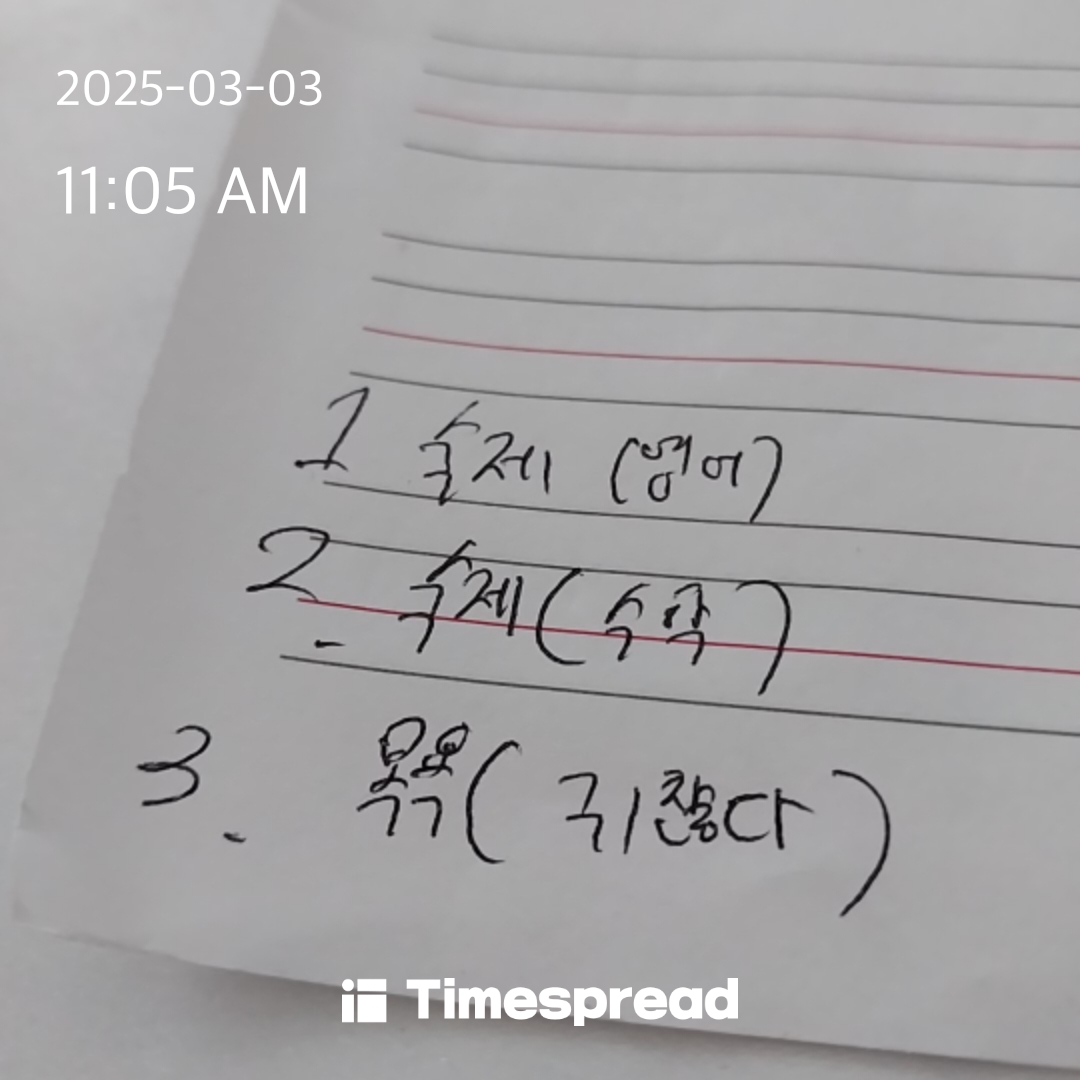 2025-03-03
11:05 AM
1 숙제 (영어)
2. 숙제 (수학)
3. (귀찮다)
Timespread